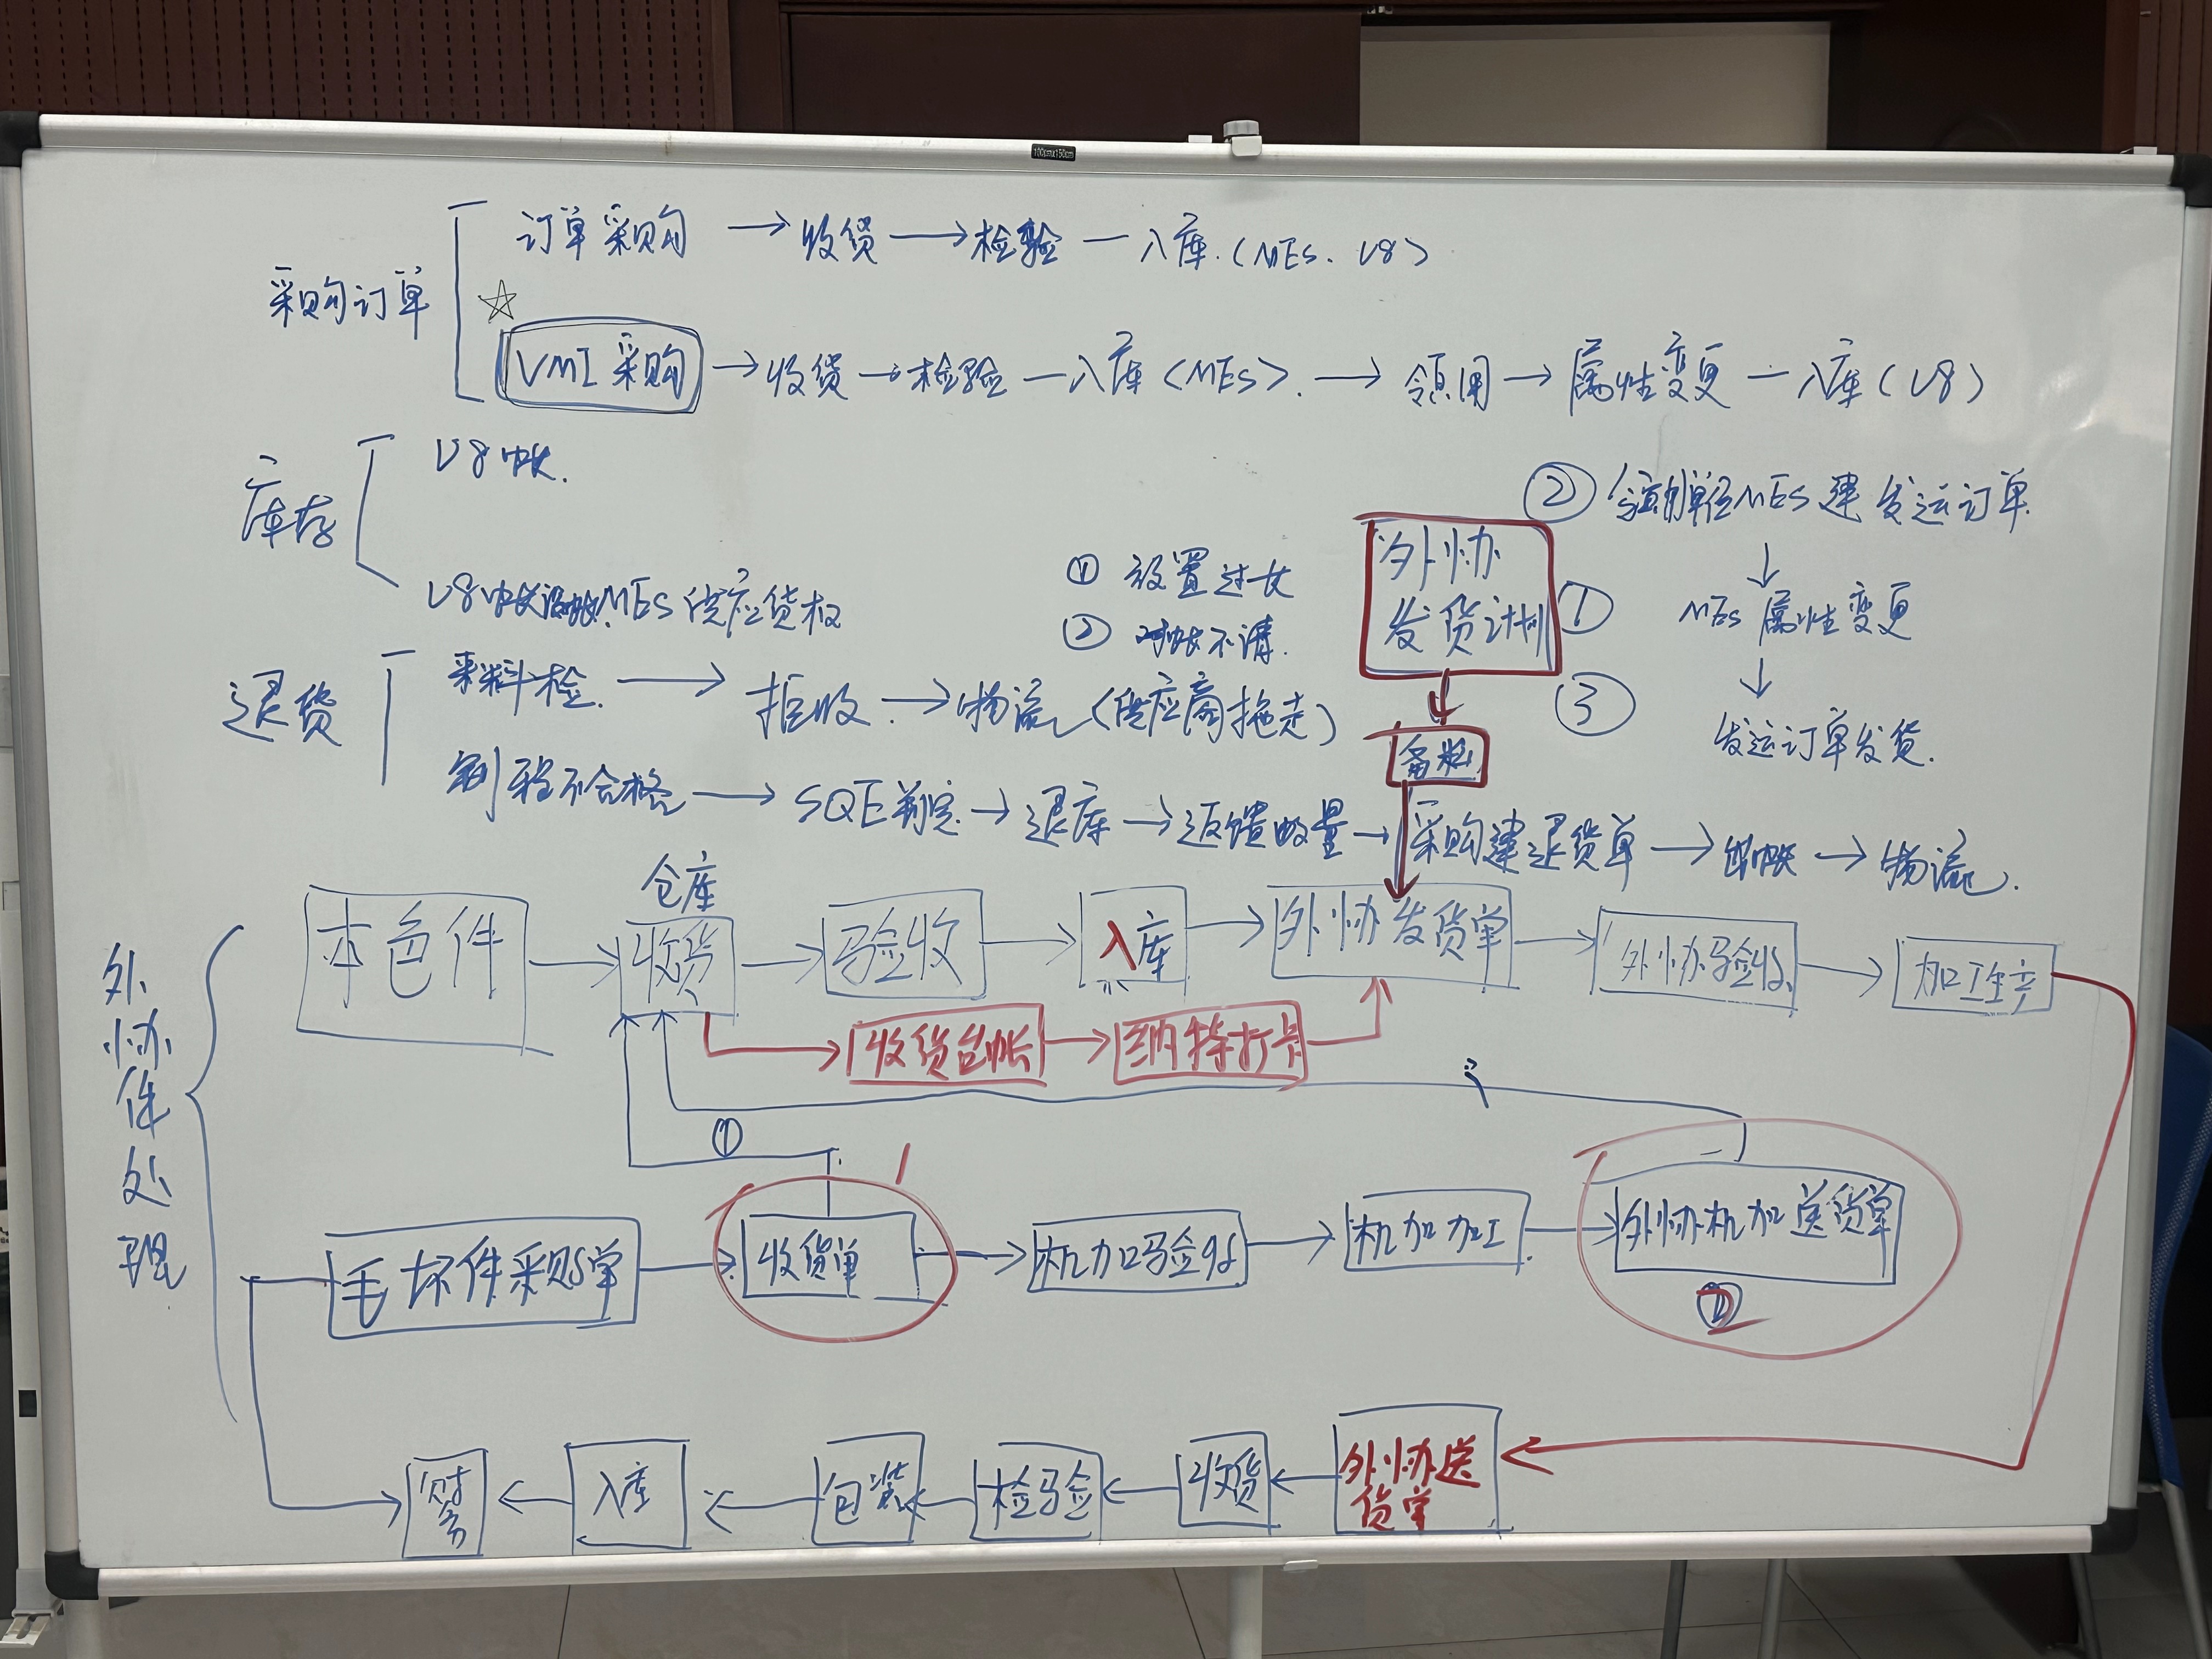 100cmx150cm
采购订单
订单采购 → 收货 → 检验 — 入库.（MES. U8）
☆
VMI采购 → 收货 → 检验 — 入库<MES>. → 领用 → 属性变更 — 入库（U8）
库存
U8帐.
U8帐 MES供应货权
① 放置过长
② 对帐不清.
外协
发货计划
①
③
备料
② MES建发运订单.
↓
MES属性变更
↓
发运订单发货.
退货
来料检. → 拒收. → 物流（供应商拖走）
制程不合格 → SQE判定 → 退库 → 返馈数量 → 采购建退货单 → → 物流.
外协件处理
仓库
本色件 → 收货 → 验收 → 入库 → 外协发货单 → 外协验收 → 加工生产
收货台帐 → 纳特打卡
①
1
毛坏件采购单 → 收货单 → 机加验收 → 机加加工 → 外协机加送货单
②
财务 ← 入库 ← 包装 ← 检验 ← 收货 ← 外协送
货单